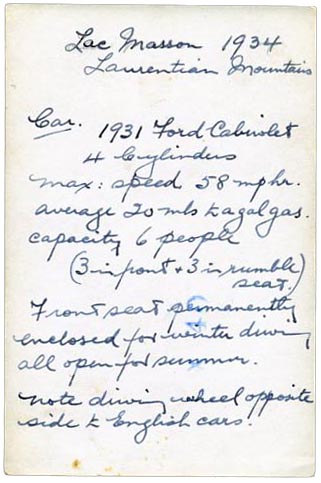 Lac Masson 1934
Laurentian Mountains
Car. 1931 Ford Cabriolet
4 Cylinders
max: speed 58 mphr.
average 20 mls to a gal gas.
capacity 6 people
(3 in front + 3 in rumble
seat.)
Front seat permanently
enclosed for winter driving
all open for summer.
note driving wheel opposite
side to English cars.